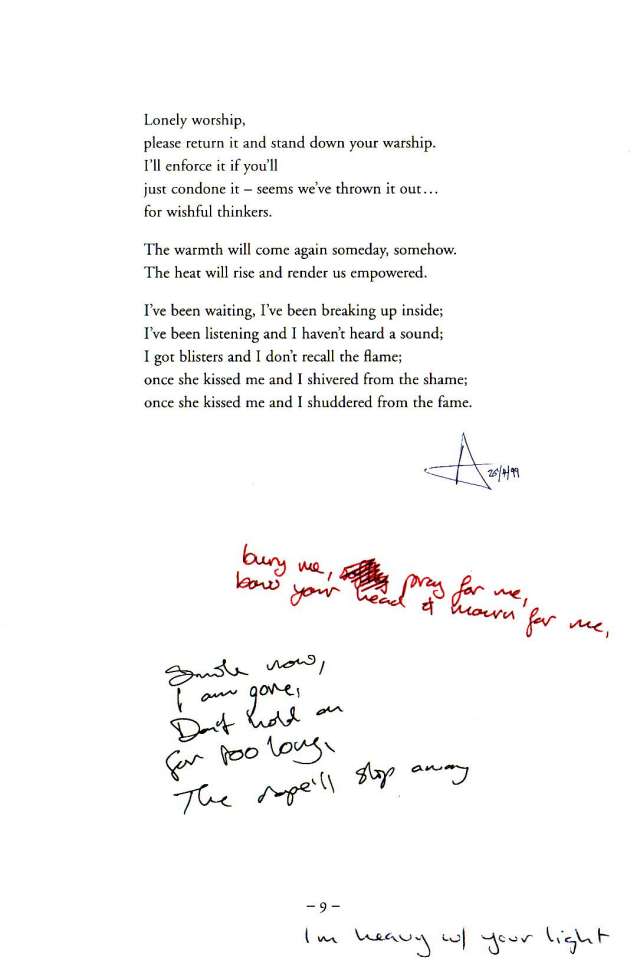 Lonely worship,
please return it and stand down your warship.
I'll enforce it if you'll
just condone it – seems we've thrown it out…
for wishful thinkers.
The warmth will come again someday, somehow.
The heat will rise and render us empowered.
I've been waiting, I've been breaking up inside;
I've been listening and I haven't heard a sound;
I got blisters and I don't recall the flame;
once she kissed me and I shivered from the shame;
once she kissed me and I shuddered from the fame.
A 25/4/99
bury me, pray for me,
bow your head & mourn for me,
Smile now,
I am gone,
Don't hold on
for too long,
The rope'll slip away
– 9 –
I'm heavy w/ your light